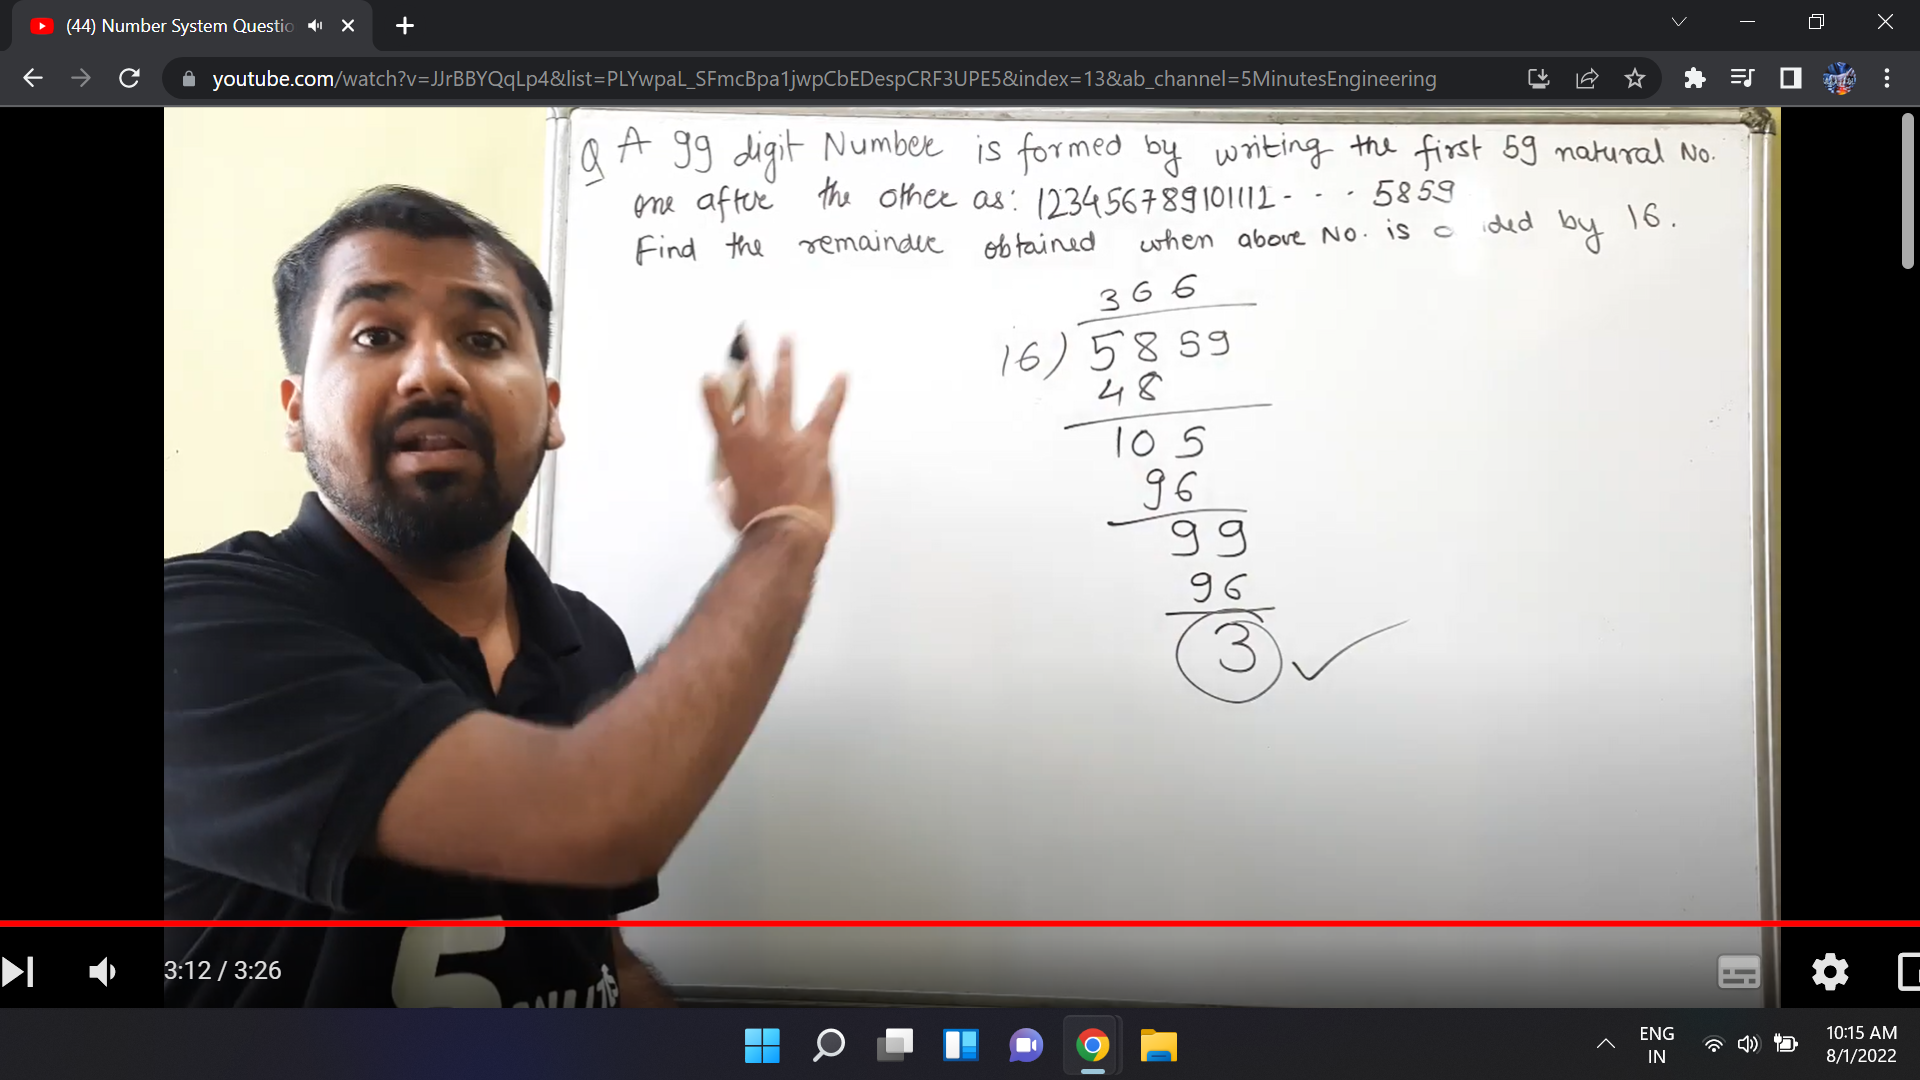 (44) Number System Questio
youtube.com/watch?v=JJrBBYQqLp4&list=PLYwpaL_SFmcBpa1jwpCbEDespCRF3UPE5&index=13&ab_channel=5MinutesEngineering
Q A 99 digit Number is formed by writing the first 59 natural No.
one after the other as: 123456789101112- - - 5859
Find the remainder obtained when above No. is by 16.
366
16) 5859
48
105
96
99
96
3 ✓
5
3:12 / 3:26
ENG
IN
10:15 AM
8/1/2022